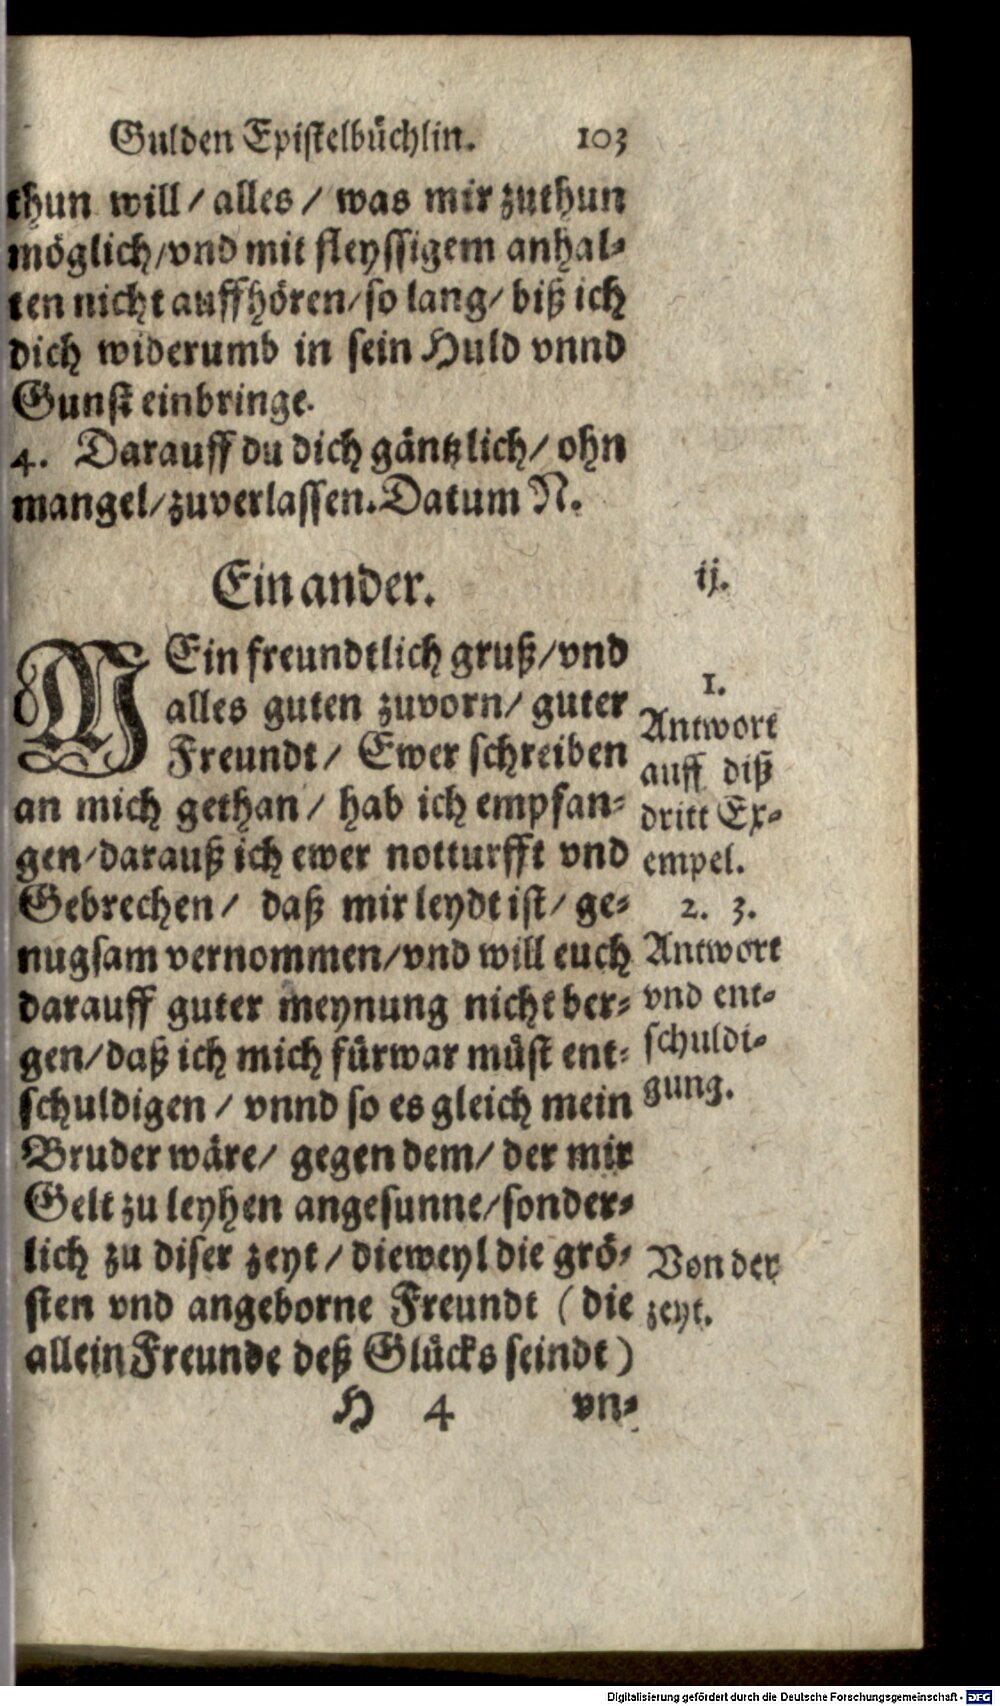 Gulden Epistelbüchlin. 103
thun will / alles / was mir zuthun
möglich / vnd mit fleyssigem anhal-
ten nicht auffhören / so lang / biß ich
dich widerumb in sein Huld vnnd
Gunst einbringe.
4. Darauff du dich gäntzlich / ohn
mangel / zuverlassen. Datum N.
Ein ander.
ij.
MEin freundtlich gruß / vnd
alles guten zuvorn / guter
Freundt / Ewer schreiben
an mich gethan / hab ich empfan-
gen / darauß ich ewer notturfft vnd
Gebrechen / daß mir leydt ist / ge-
nugsam vernommen / vnd will euch
darauff guter meynung nicht ber-
gen / daß ich mich fürwar müst ent-
schuldigen / vnnd so es gleich mein
Bruder wäre / gegen dem / der mir
Gelt zu leyhen angesunne / sonder-
lich zu diser zeyt / dieweyl die grö-
sten vnd angeborne Freundt (die
allein Freunde deß Glücks seindt)
1.
Antwort
auff diß
dritt Ex-
empel.
2. 3.
Antwort
vnd ent-
schuldi-
gung.
Von der
zeyt.
H 4 vn-
Digitalisierung gefördert durch die Deutsche Forschungsgemeinschaft - DFG